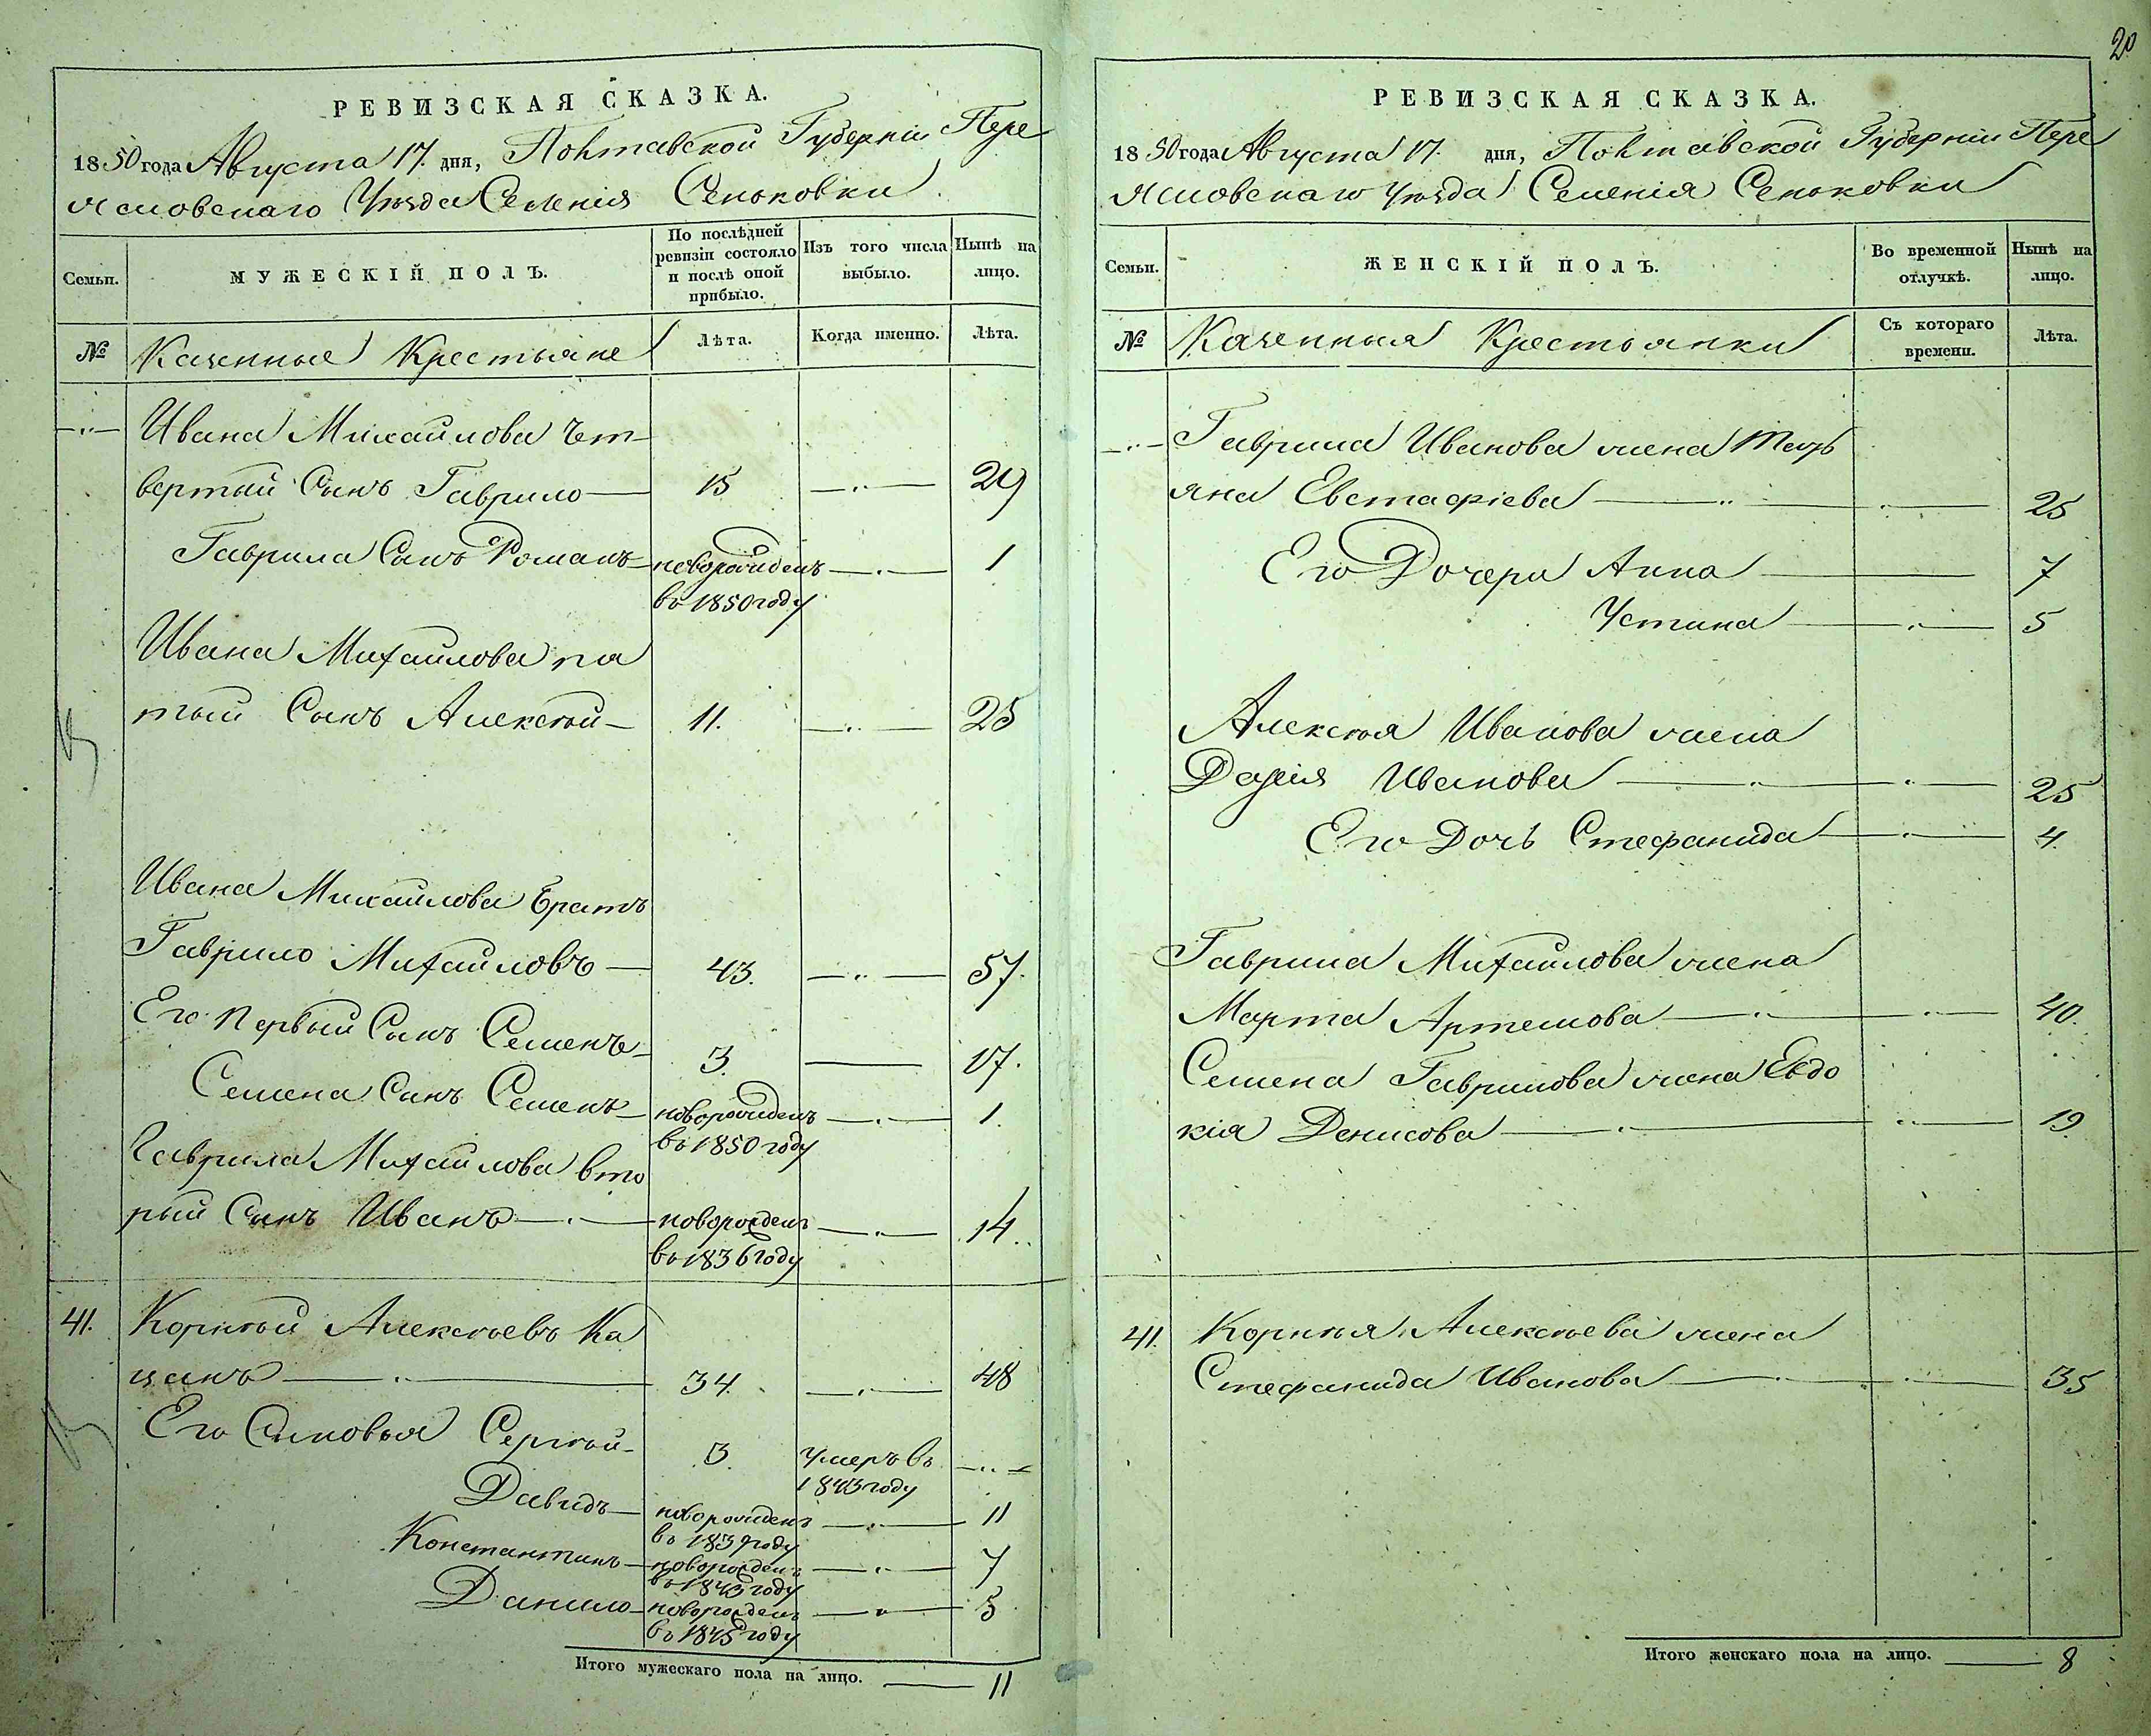 РЕВИЗСКАЯ СКАЗКА.
1850 года Августа 17. дня, Полтавской Губерніи Пере
яславскаго Уѣзда Селенія Сеньковки.
Семьи.
МУЖЕСКІЙ ПОЛЪ.
По послѣдней
ревизіи состояло
и послѣ оной
прибыло.
Изъ того числа
выбыло.
Нынѣ на
лицо.
№
Казенные Крестьяне
Лѣта.
Когда именно.
Лѣта.
Ивана Михайлова чет
вертый Сынъ Гаврило 15 29
Гаврила Сынъ Романъ новорожденъ 1
въ 1850 году
Ивана Михайлова пя
тый Сынъ Алексѣй 11. 25
Ивана Михайлова братъ
Гаврило Михайловъ 43. 57.
Его первый Сынъ Семенъ 3. 17.
Семена Сынъ Семенъ новорожденъ 1.
въ 1850 году
Гаврила Михайлова вто
рый Сынъ Иванъ новорожденъ 14.
въ 1836 году
41. Корнѣй Алексѣевъ Ка
цанъ 34. 48
Его Сыновья Сергѣй 3. умеръ въ
1843 году
Давидъ новорожденъ 11
въ 1839 году
Константинъ новорожденъ 7
въ 1843 году
Данило новорожденъ 5
въ 1845 году
Итого мужескаго пола на лицо. 11
20
РЕВИЗСКАЯ СКАЗКА.
1850 года Августа 17. дня, Полтавской Губерніи Пере
яславскаго Уѣзда Селенія Сеньковки
Семьи.
ЖЕНСКІЙ ПОЛЪ.
Во временной
отлучкѣ.
Нынѣ на
лицо.
№
Казенныя Крестьянки
Съ котораго
времени.
Лѣта.
Гаврила Иванова жена Тать
яна Евстафіева 25
Его Дочери Анна 7
Устина 5
Алексѣя Иванова жена
Дарія Иванова 25
Его Дочь Стефанида 4.
Гаврила Михайлова жена
Марта Артемова 40.
Семена Гаврилова жена Евдо
кія Денисова 19.
41. Корнѣя Алексѣева жена
Стефанида Иванова 35
Итого женскаго пола на лицо. 8